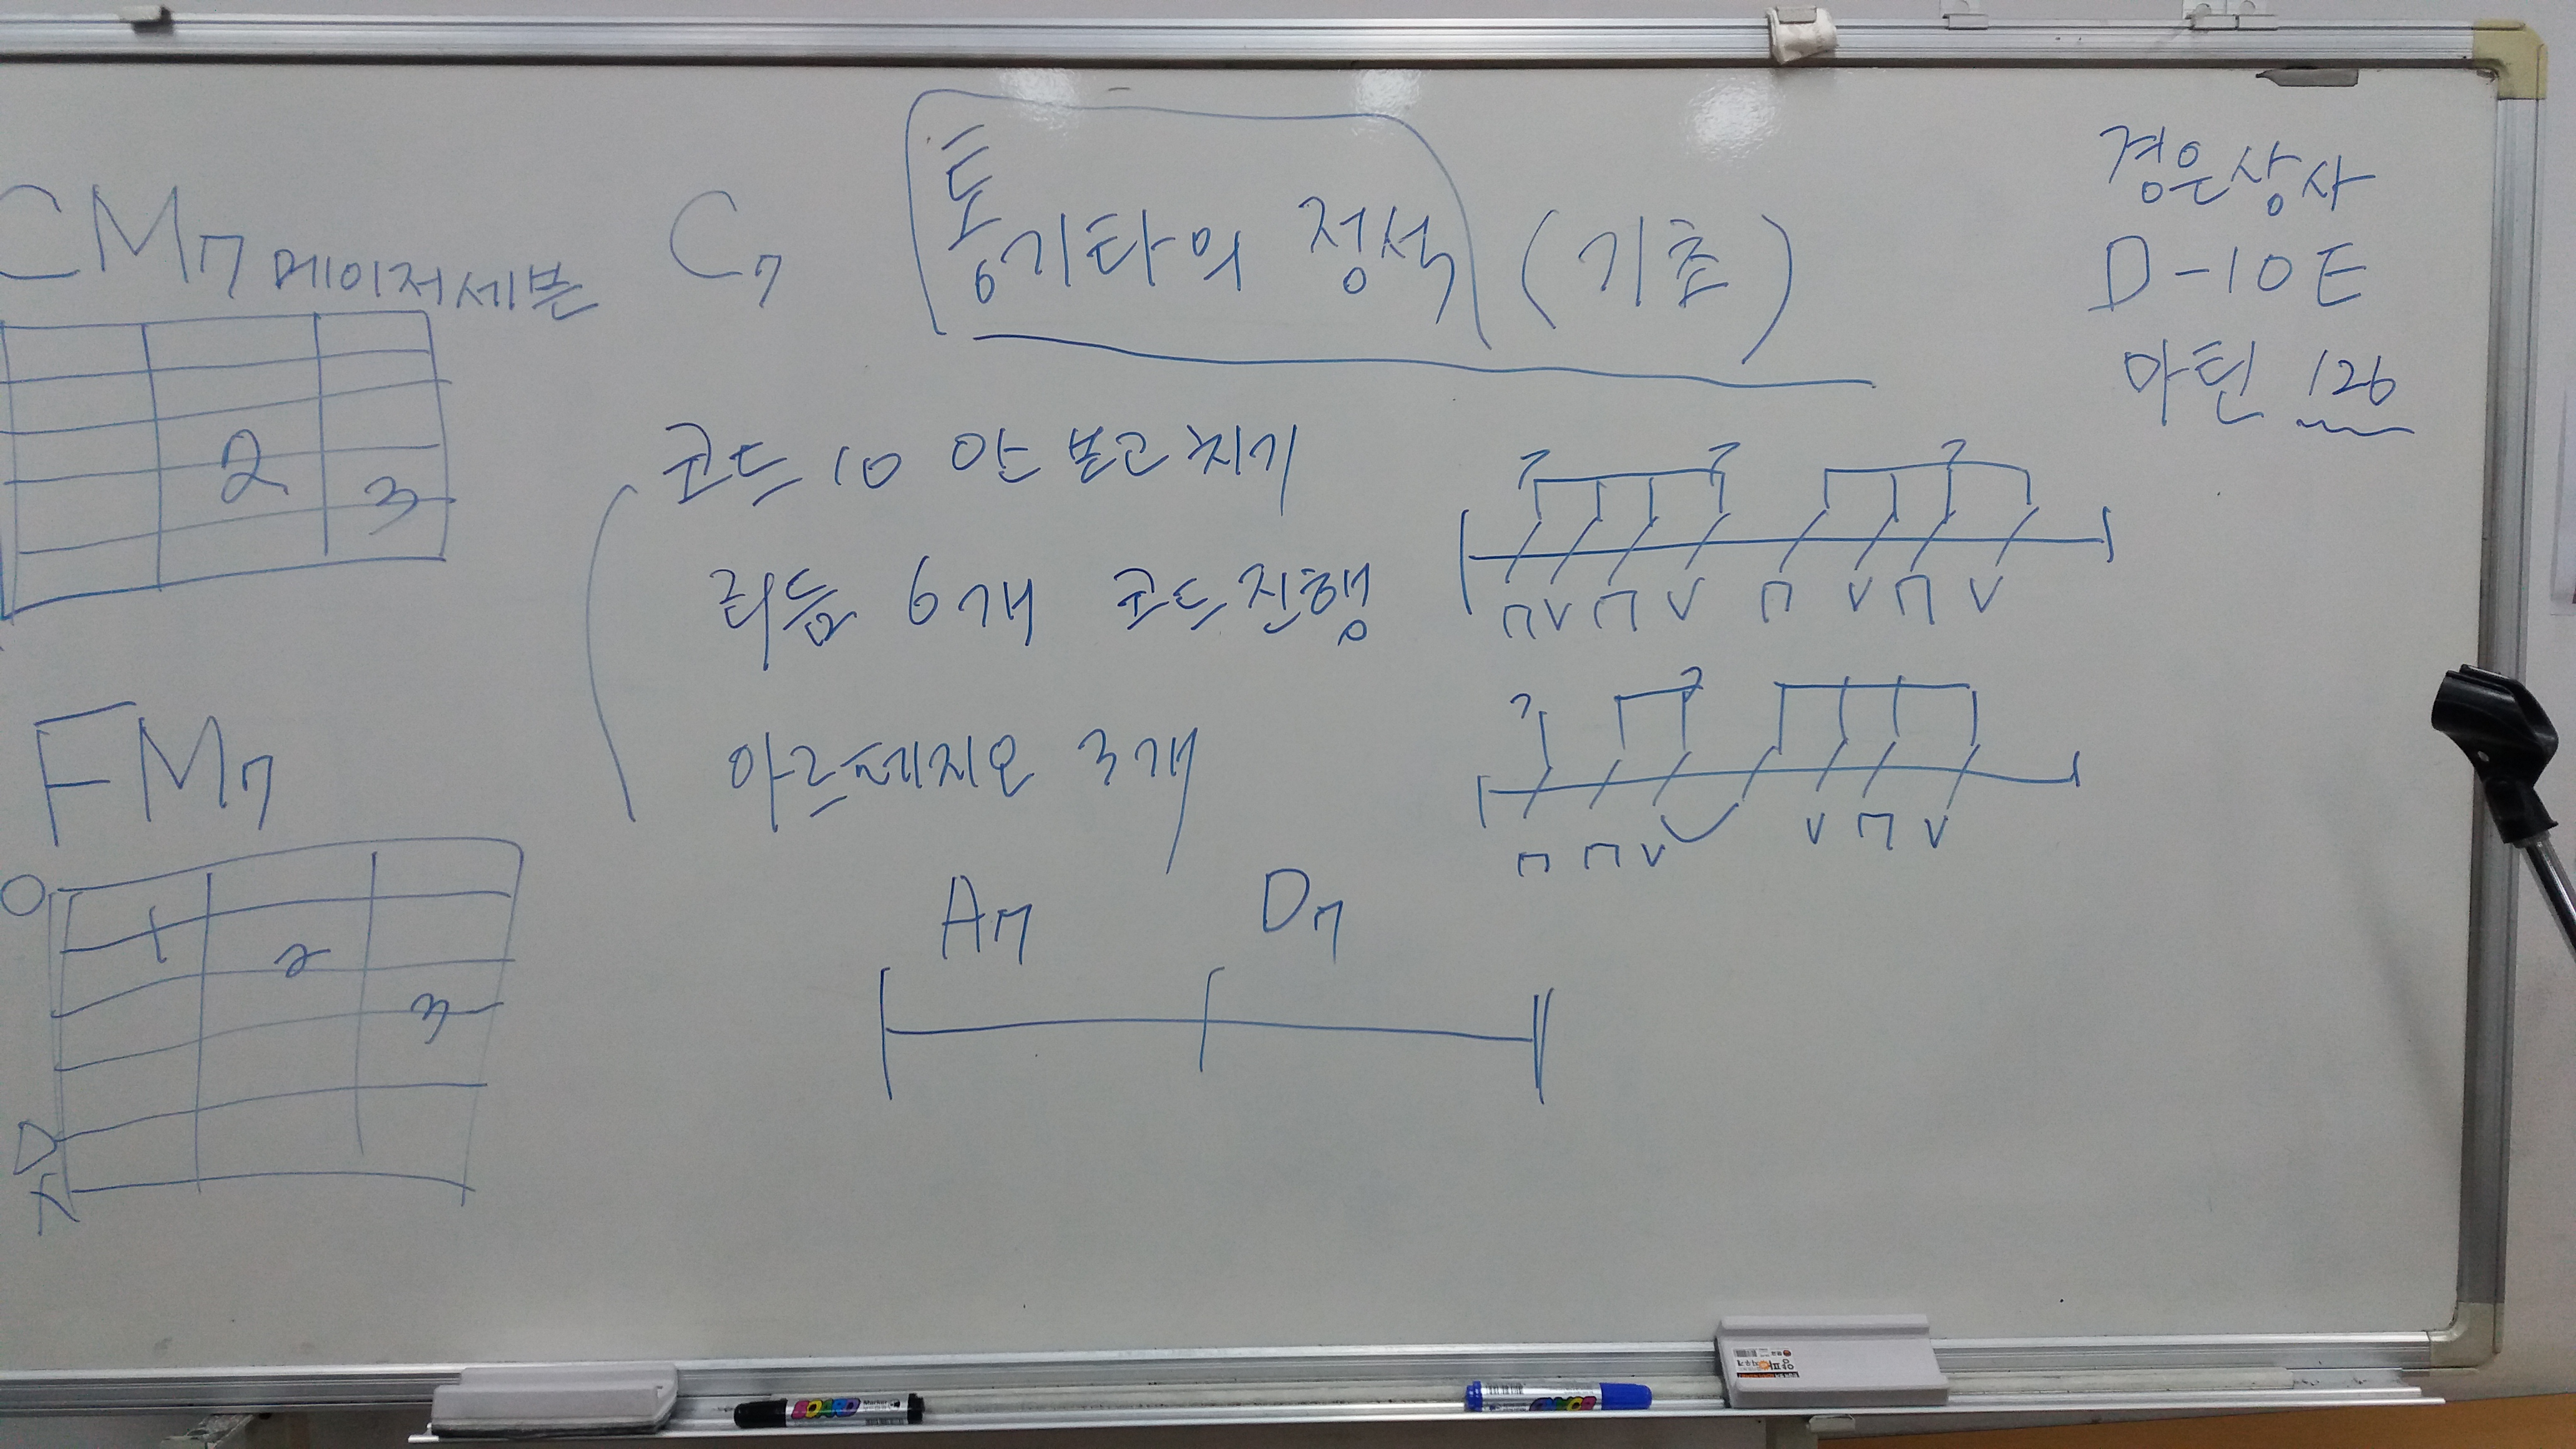 CM7 메이저세븐
2
3
FM7
O
1
2
3
C7
통기타의 정석 (기초)
코드 10 안보고치기
리듬 6개 코드진행
아르페지오 3개
A7 D7
경은상사
D-10E
마틴 126
BOARD Marker